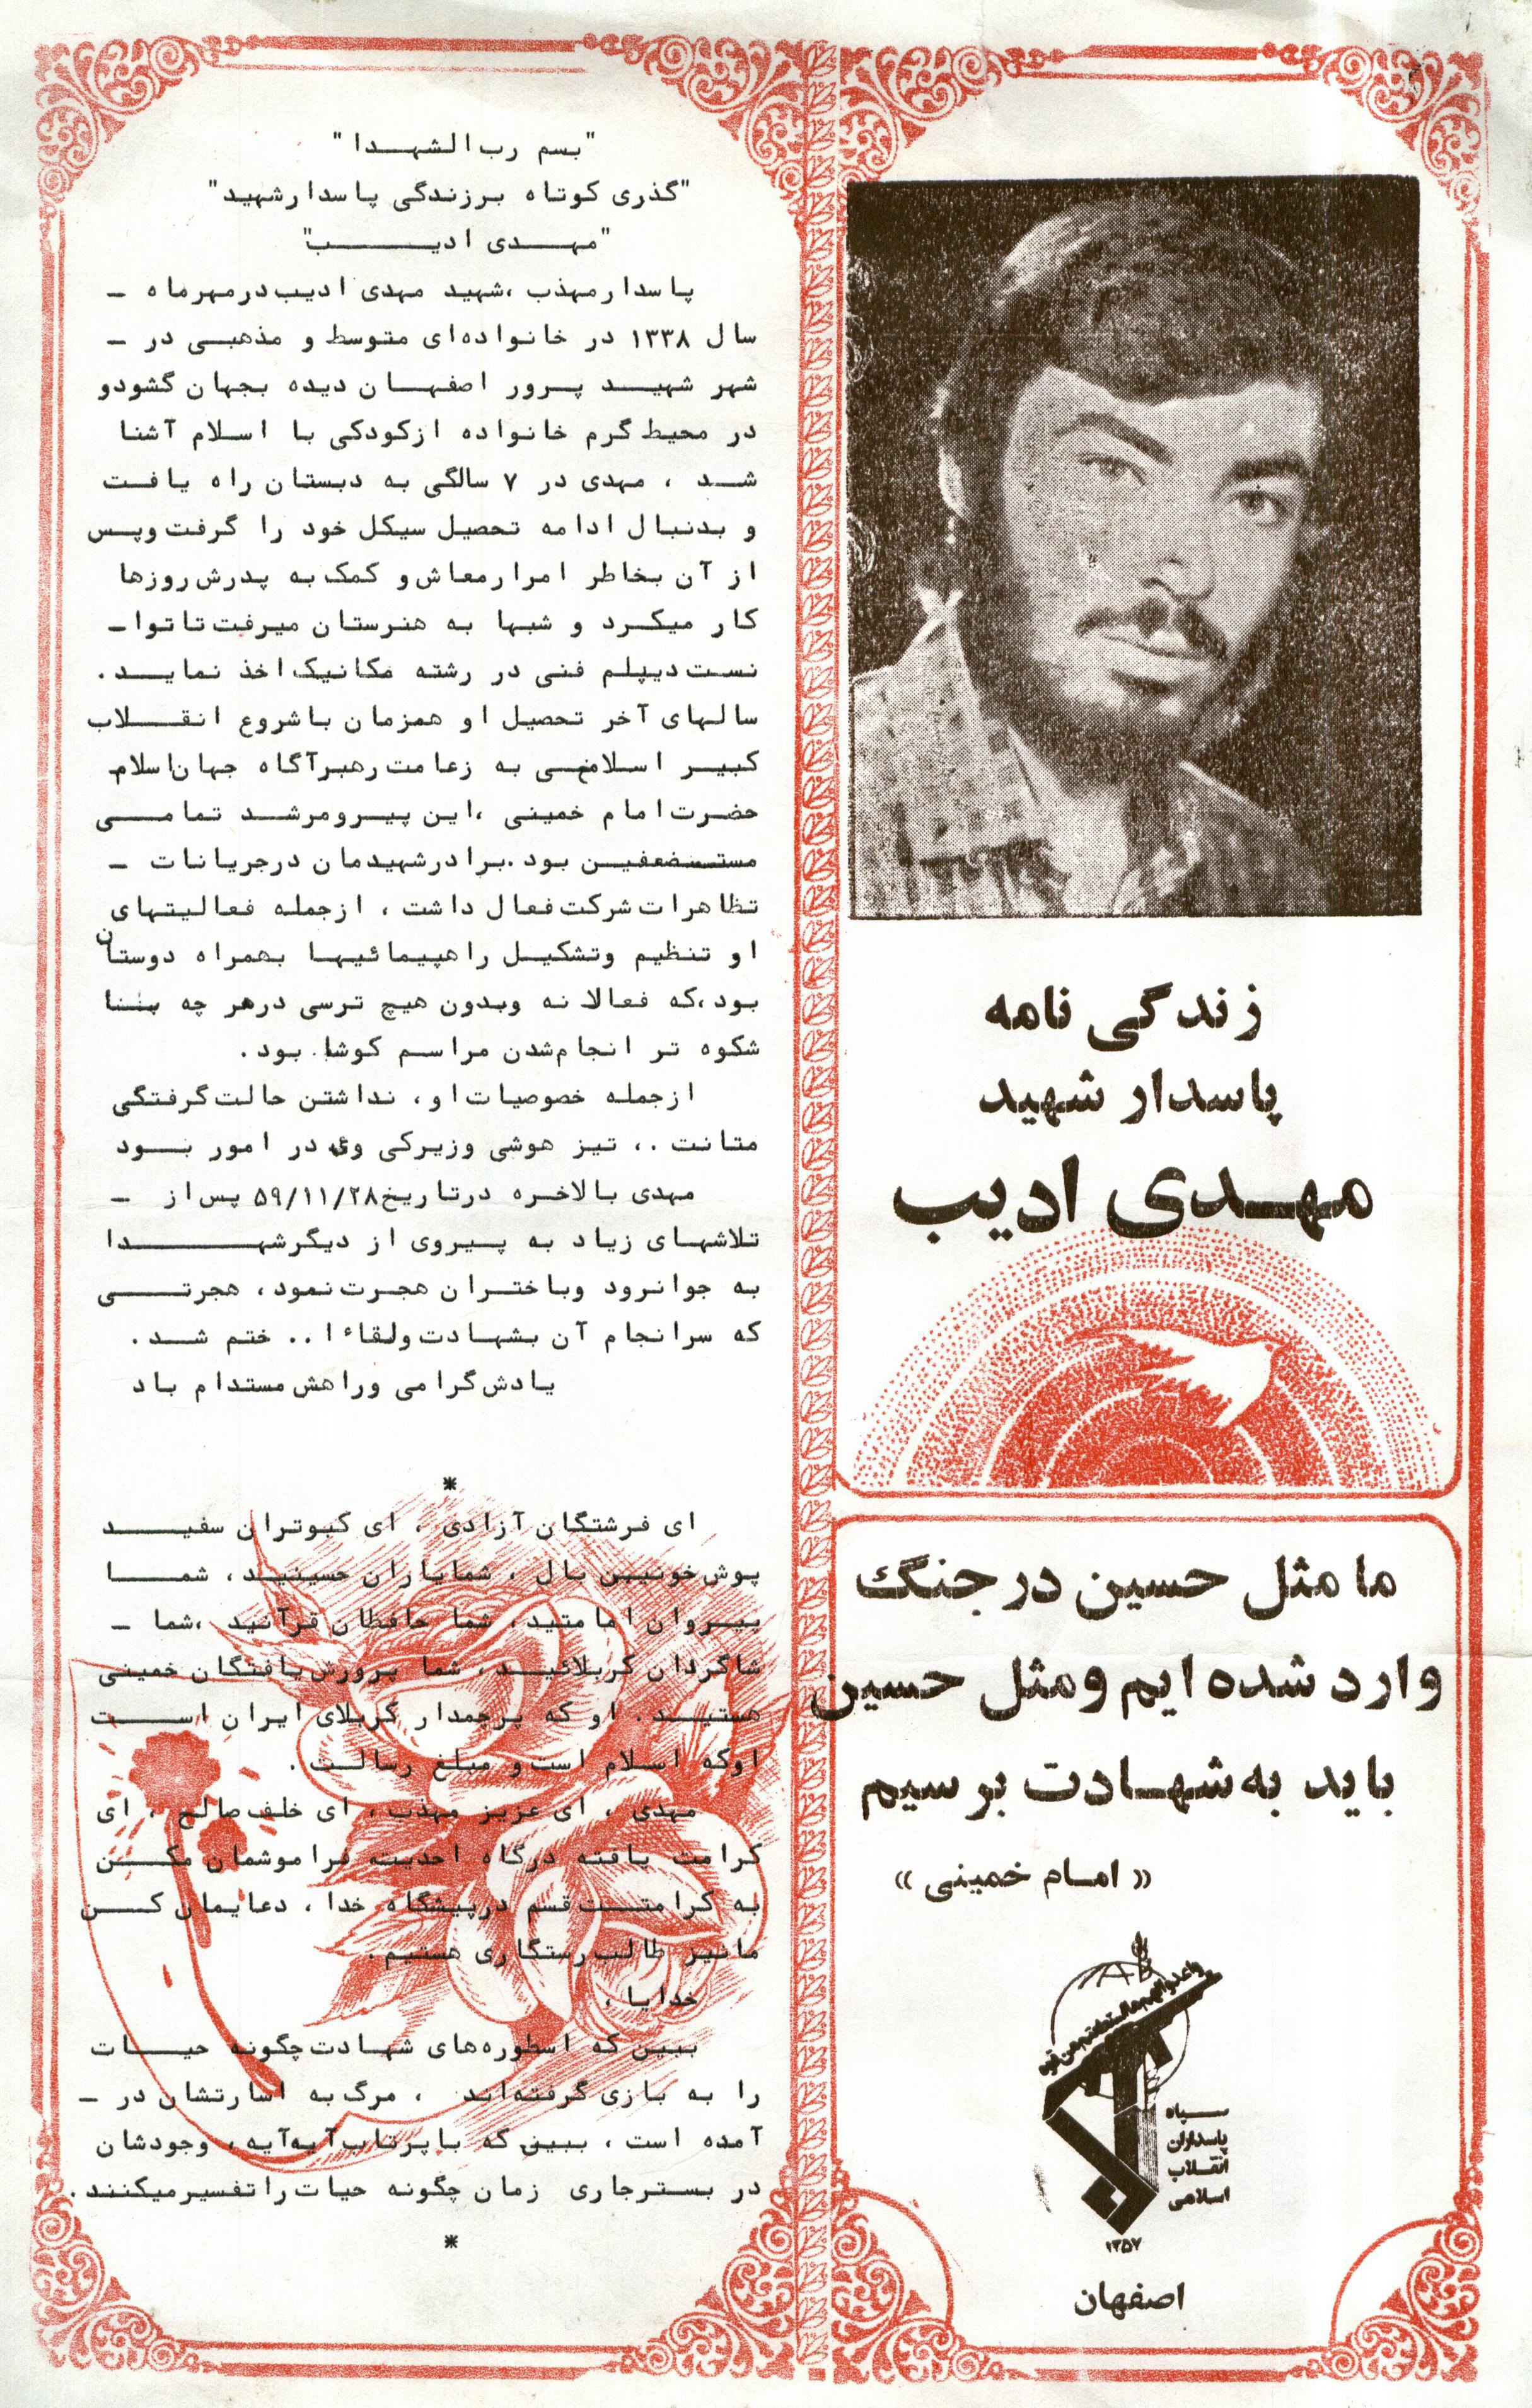 زندگی نامه
پاسدار شهید
مهدی ادیب
ما مثل حسین در جنگ
وارد شده ایم و مثل حسین
باید به شهادت برسیم
« امام خمینی »
سپاه
پاسداران
انقلاب
اسلامی
۱۳۵۷
اصفهان
"بسم رب الشهدا"
"گذری کوتاه برزندگی پاسدارشهید"
"مهدی ادیب"
پاسدارمهذب ،شهید مهدی ادیب درمهرماه -
سال ۱۳۳۸ در خانواده‌ای متوسط و مذهبی در -
شهر شهید پرور اصفهان دیده بجهان گشودو
در محیط گرم خانواده ازکودکی با اسلام آشنا
شد ، مهدی در ۷ سالگی به دبستان راه یافت
و بدنبال ادامه تحصیل سیکل خود را گرفت وپس
از آن بخاطر امرارمعاش و کمک به پدرش روزها
کار میکرد و شبها به هنرستان میرفت تاتوا-
نست دیپلم فنی در رشته مکانیک اخذ نماید.
سالهای آخر تحصیل او همزمان باشروع انقلاب
کبیر اسلامی به زعامت رهبرآگاه جهان اسلام
حضرت امام خمینی ،این پیرومرشد تمامی
مستضعفین بود .برادرشهیدمان درجریانات -
تظاهرات شرکت فعال داشت ، ازجمله فعالیتهای
او تنظیم وتشکیل راهپیمائیها بهمراه دوستان
بود،که فعالانه وبدون هیچ ترسی درهر چه
شکوه تر انجام شدن مراسم کوشا بود.
ازجمله خصوصیات او ، نداشتن حالت گرفتگی
متانت .، تیز هوشی وزیرکی وی در امور بود
مهدی بالاخره درتاریخ ۵۹/۱۱/۲۸ پس از -
تلاشهای زیاد به پیروی از دیگرشهدا
به جوانرود وباختران هجرت نمود، هجرتی
که سرانجام آن بشهادت ولقاء ا.. ختم شد.
یادش گرامی وراهش مستدام باد
*
ای فرشتگان آزادی ، ای کبوتران سفید
پوش خونین بال ، شمایاران حسینید، شما
پیروان امامتید، شما حافظان قرآنید ،شما -
شاگردان کربلائید، شما پرورش یافتگان خمینی
هستید. او که پرچمدار کربلای ایران است
اوکه اسلام است و مبلغ رسالت .
مهدی ، ای عزیز مهذب ، ای خلف صالح ، ای
کرامت یافته درگاه احدیت فراموشمان مکن
به کرامتت قسم درپیشگاه خدا ، دعایمان کن
مانیز طالب رستگاری هستیم.
خدایا ،
ببین که اسطوره‌های شهادت چگونه حیات
را به بازی گرفته‌اند ، مرگ به اسارتشان در -
آمده است ، ببین که باپرتاب آیه‌آیه، وجودشان
در بسترجاری زمان چگونه حیات راتفسیرمیکنند.
*